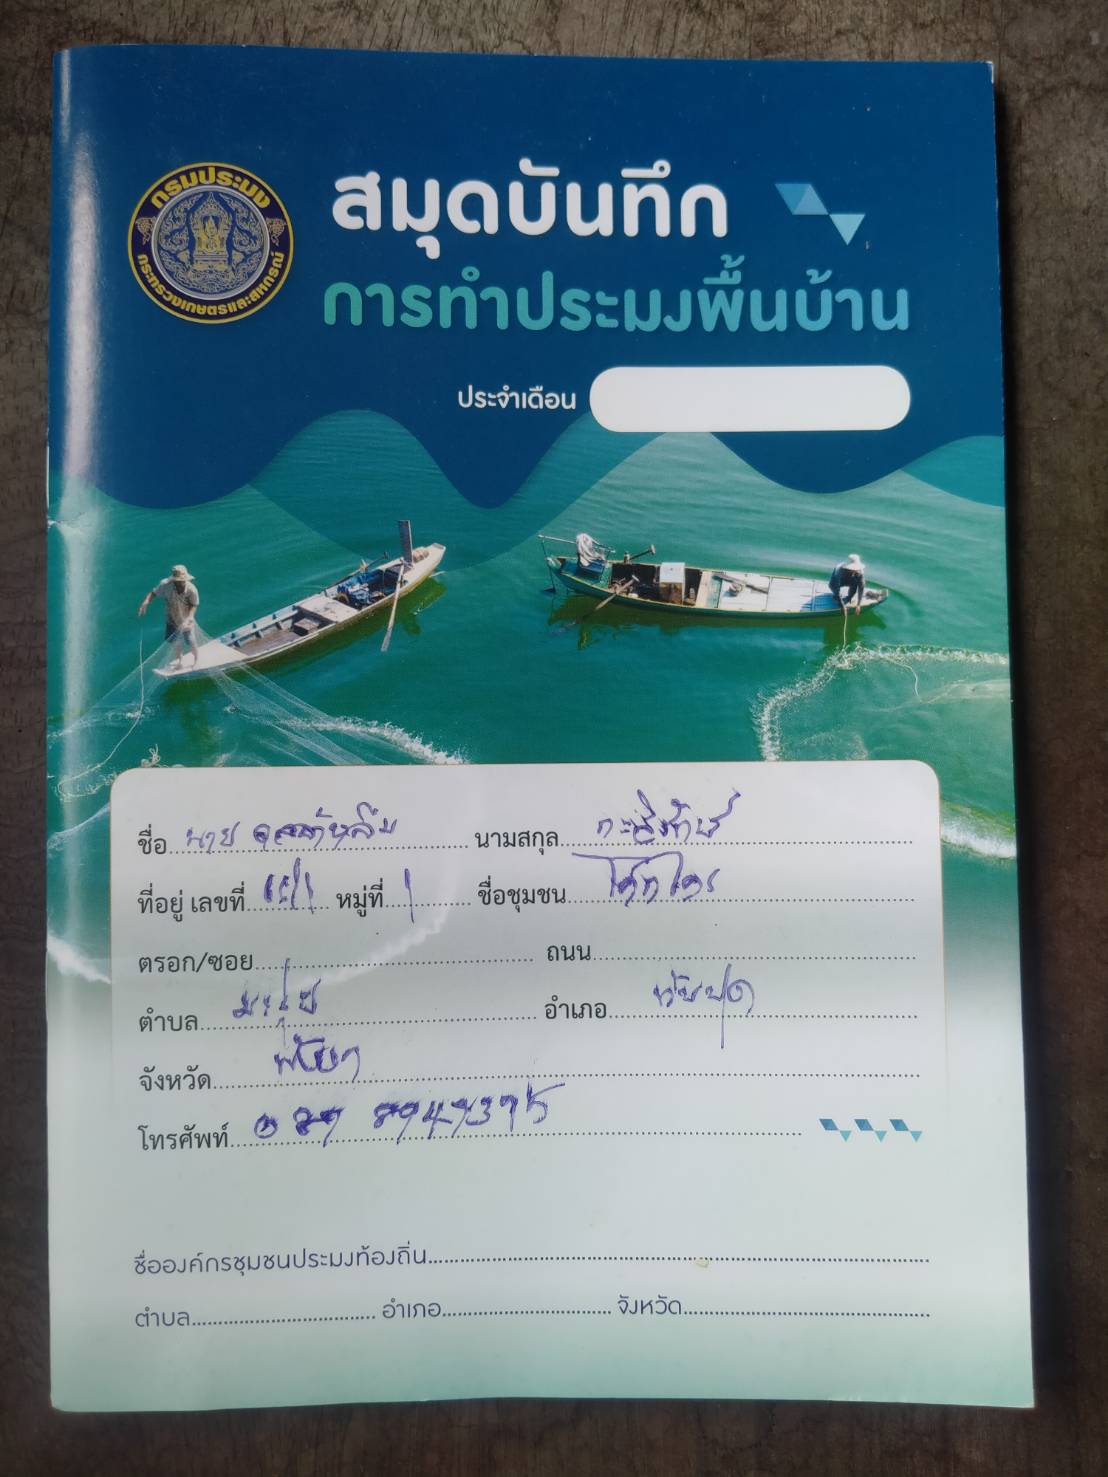 กรมประมง
กระทรวงเกษตรและสหกรณ์
สมุดบันทึก
การทำประมงพื้นบ้าน
ประจำเดือน
ชื่อ นาย นามสกุล
ที่อยู่ เลขที่ หมู่ที่ 1 ชื่อชุมชน
ตรอก/ซอย ถนน
ตำบล มะรุ่ย อำเภอ ทับปุด
จังหวัด พังงา
โทรศัพท์
ชื่อองค์กรชุมชนประมงท้องถิ่น
ตำบล อำเภอ จังหวัด